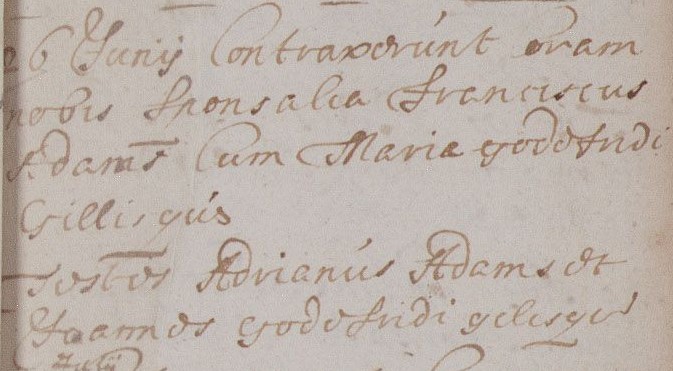 26 Junij Contraxerúnt coram
nobis sponsalia franciscus
Adams Cum Maria godefridi
Gillisgús
Testes Adrianús Adams et
Joannes godefridi gelisgús
Julij